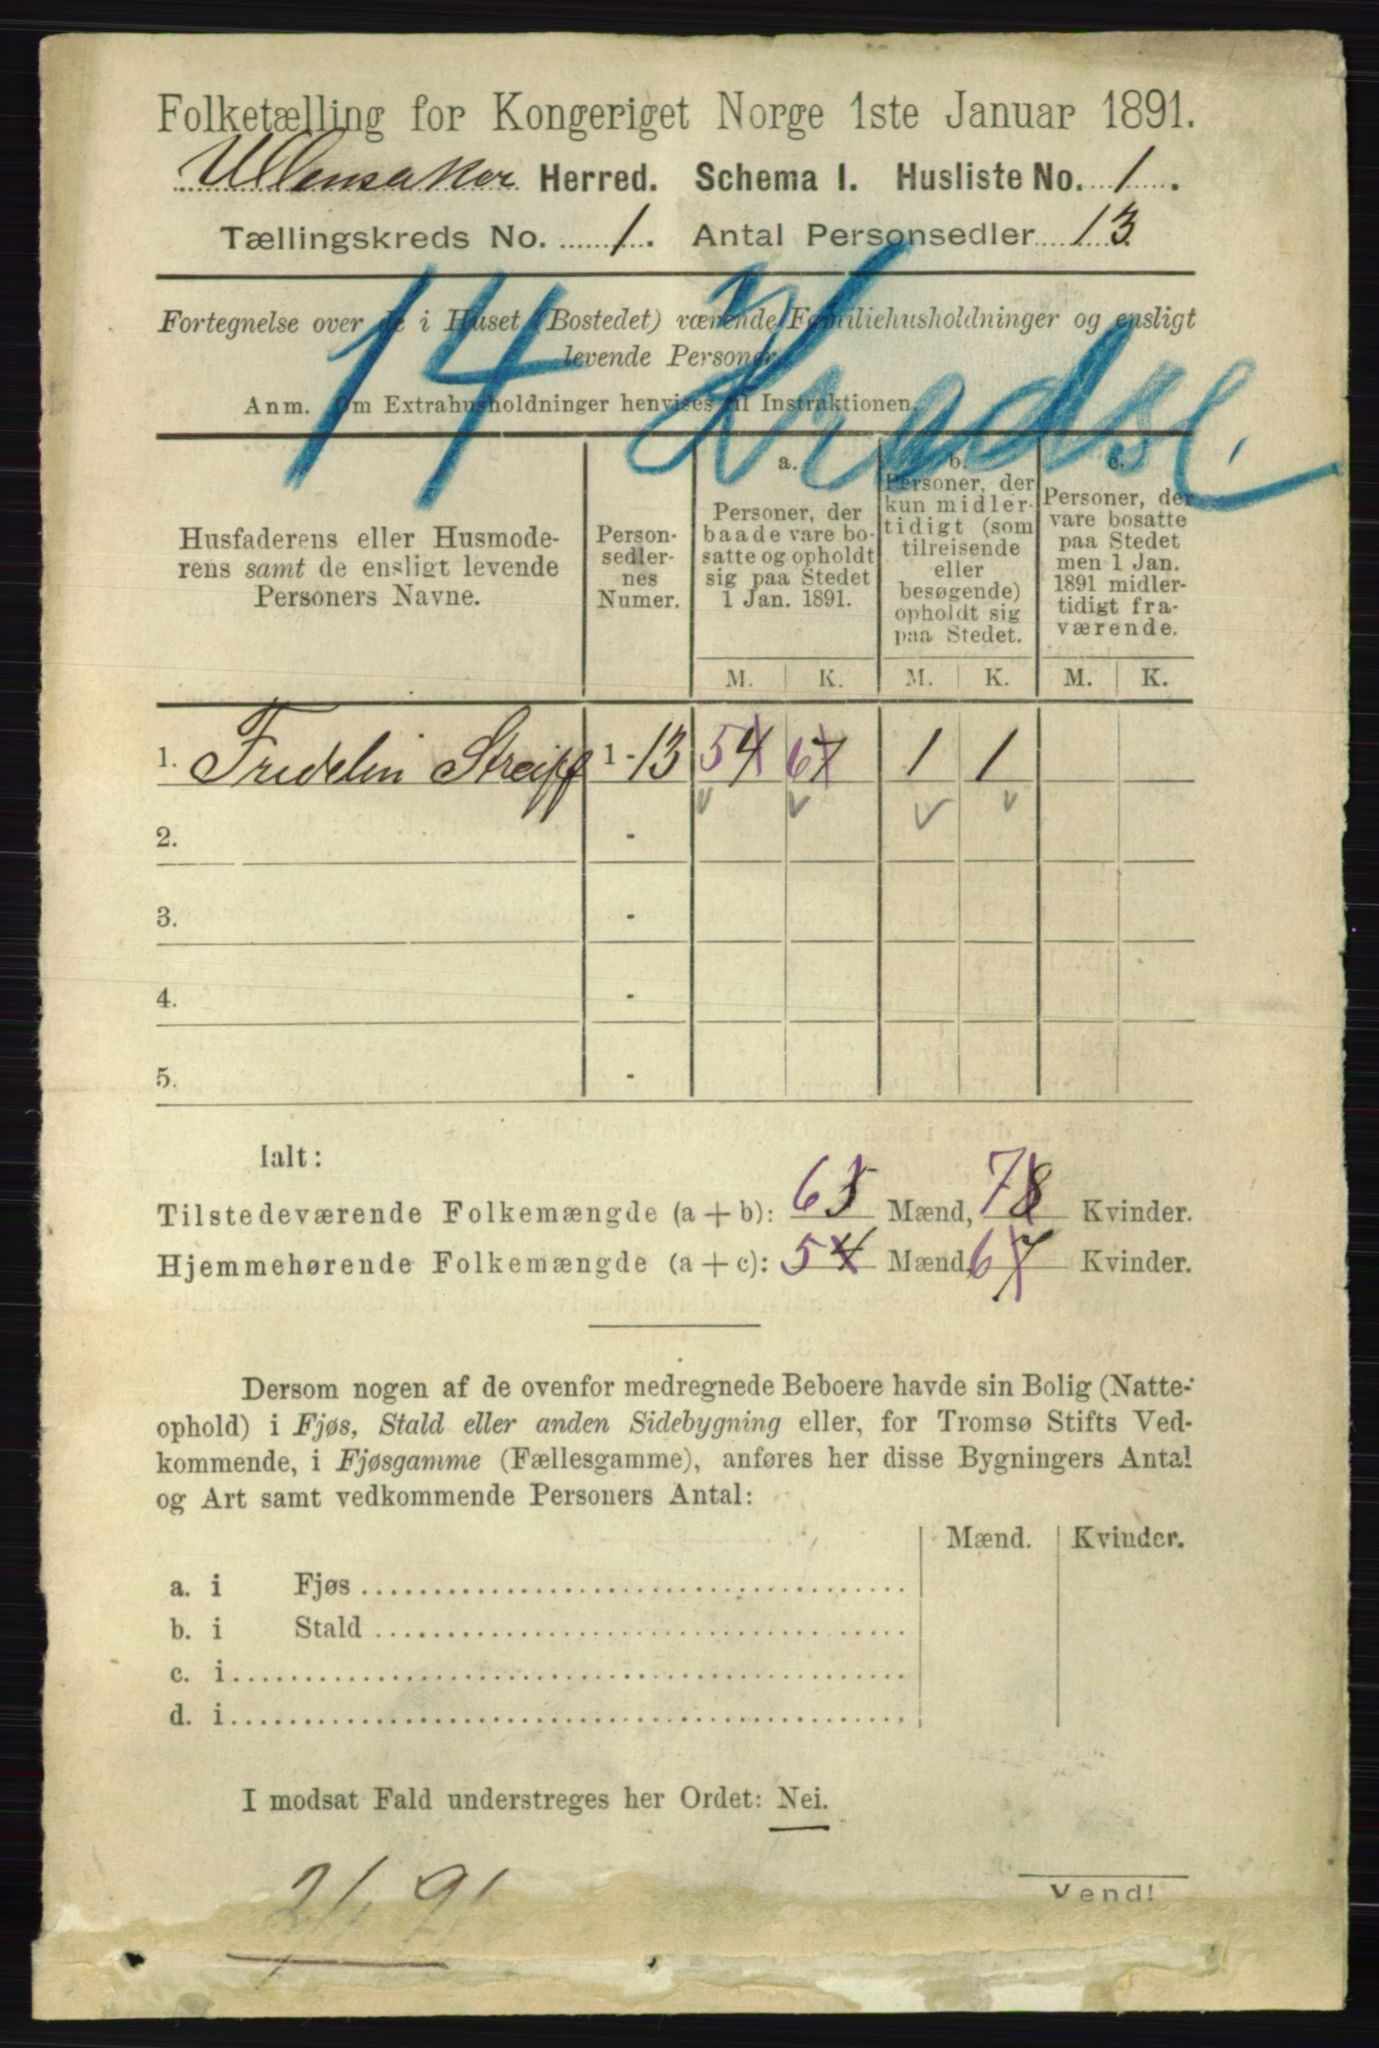 Folketælling for Kongeriget Norge 1ste Januar 1891.
Ullensaker Herred. Schema I. Husliste No. 1.
Tællingskreds No. 1. Antal Personsedler 13
14 Kredse
Fortegnelse over de i Huset (Bostedet) værende Familiehusholdninger og ensligt
levende Personer.
Anm. Om Extrahusholdninger henvises til Instruktionen.
Husfaderens eller Husmode-
rens samt de ensligt levende
Personers Navne.
Person-
sedler-
nes
Numer.
a.
Personer, der
baade vare bo-
satte og opholdt
sig paa Stedet
1 Jan. 1891.
b.
Personer, der
kun midler-
tidigt (som
tilreisende
eller
besøgende)
opholdt sig
paa Stedet.
c.
Personer, der
vare bosatte
paa Stedet
men 1 Jan.
1891 midler-
tidigt fra-
værende.
M. K. M. K. M. K.
1. Fridelin Streiff 1 - 13 5 4 6 7 1 1
2. -
3. -
4. -
5. -
Ialt:
Tilstedeværende Folkemængde (a + b): 6 5 Mænd, 7 8 Kvinder.
Hjemmehørende Folkemængde (a + c): 5 4 Mænd, 6 7 Kvinder.
Dersom nogen af de ovenfor medregnede Beboere havde sin Bolig (Natte-
ophold) i Fjøs, Stald eller anden Sidebygning eller, for Tromsø Stifts Ved-
kommende, i Fjøsgamme (Fællesgamme), anføres her disse Bygningers Antal
og Art samt vedkommende Personers Antal:
Mænd. Kvinder.
a. i Fjøs
b. i Stald
c. i
d. i
I modsat Fald understreges her Ordet: Nei.
2/1 91
Vend!